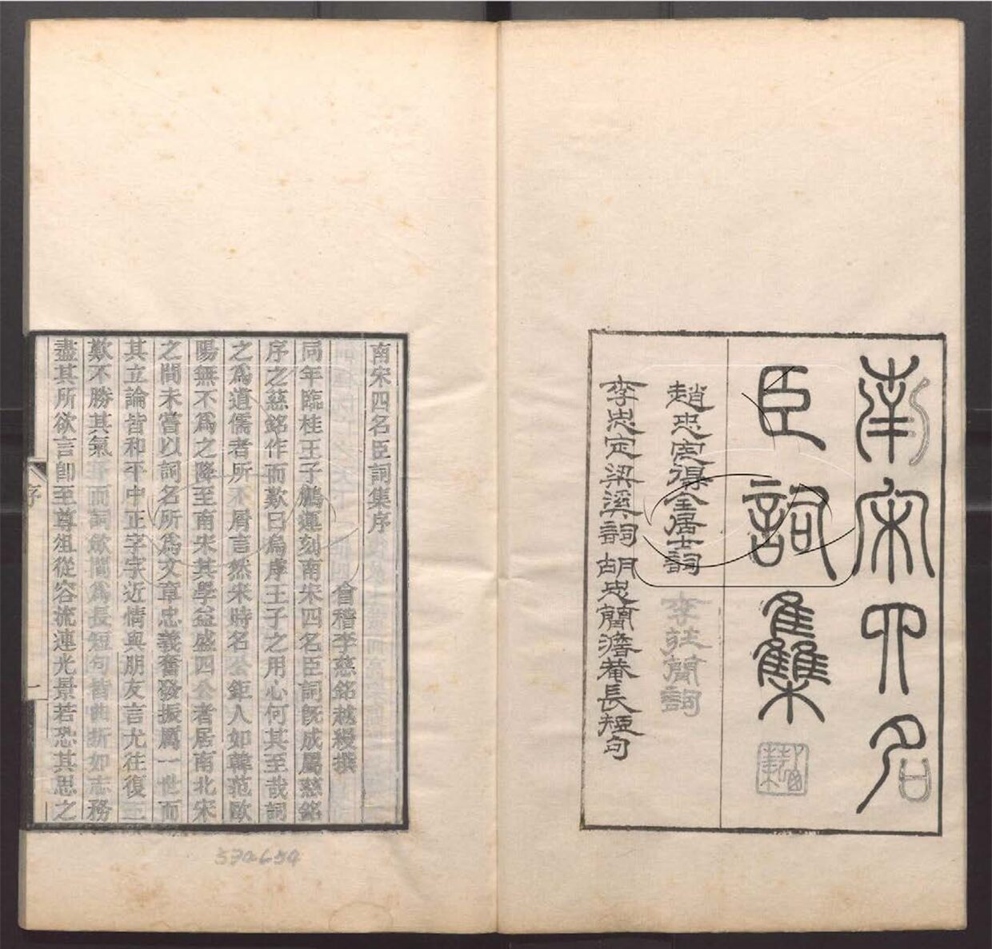 南宋四名
臣詞集
趙忠定得全居士詞 李莊簡詞
李忠定梁溪詞 胡忠簡澹菴長短句
南宋四名臣詞集序
會稽李慈銘越縵撰
同年臨桂王子鵬運刻南宋四名臣詞旣成屬慈銘
序之慈銘作而歎曰烏虖王子之用心何其至哉詞
之爲道儒者所不屑言然宋時名公鉅人如韓范歐
陽無不爲之降至南宋其學益盛四公者居南北宋
之間未嘗以詞名所爲文章忠義奮發振厲一世而
其立論皆和平中正字字近情與朋友言尤往復三
歎不勝其氣下而詞歈閒爲長短句皆曲折如志務
盡其所欲言卽至尊俎從容流連光景若恐其思之
序
一
574654